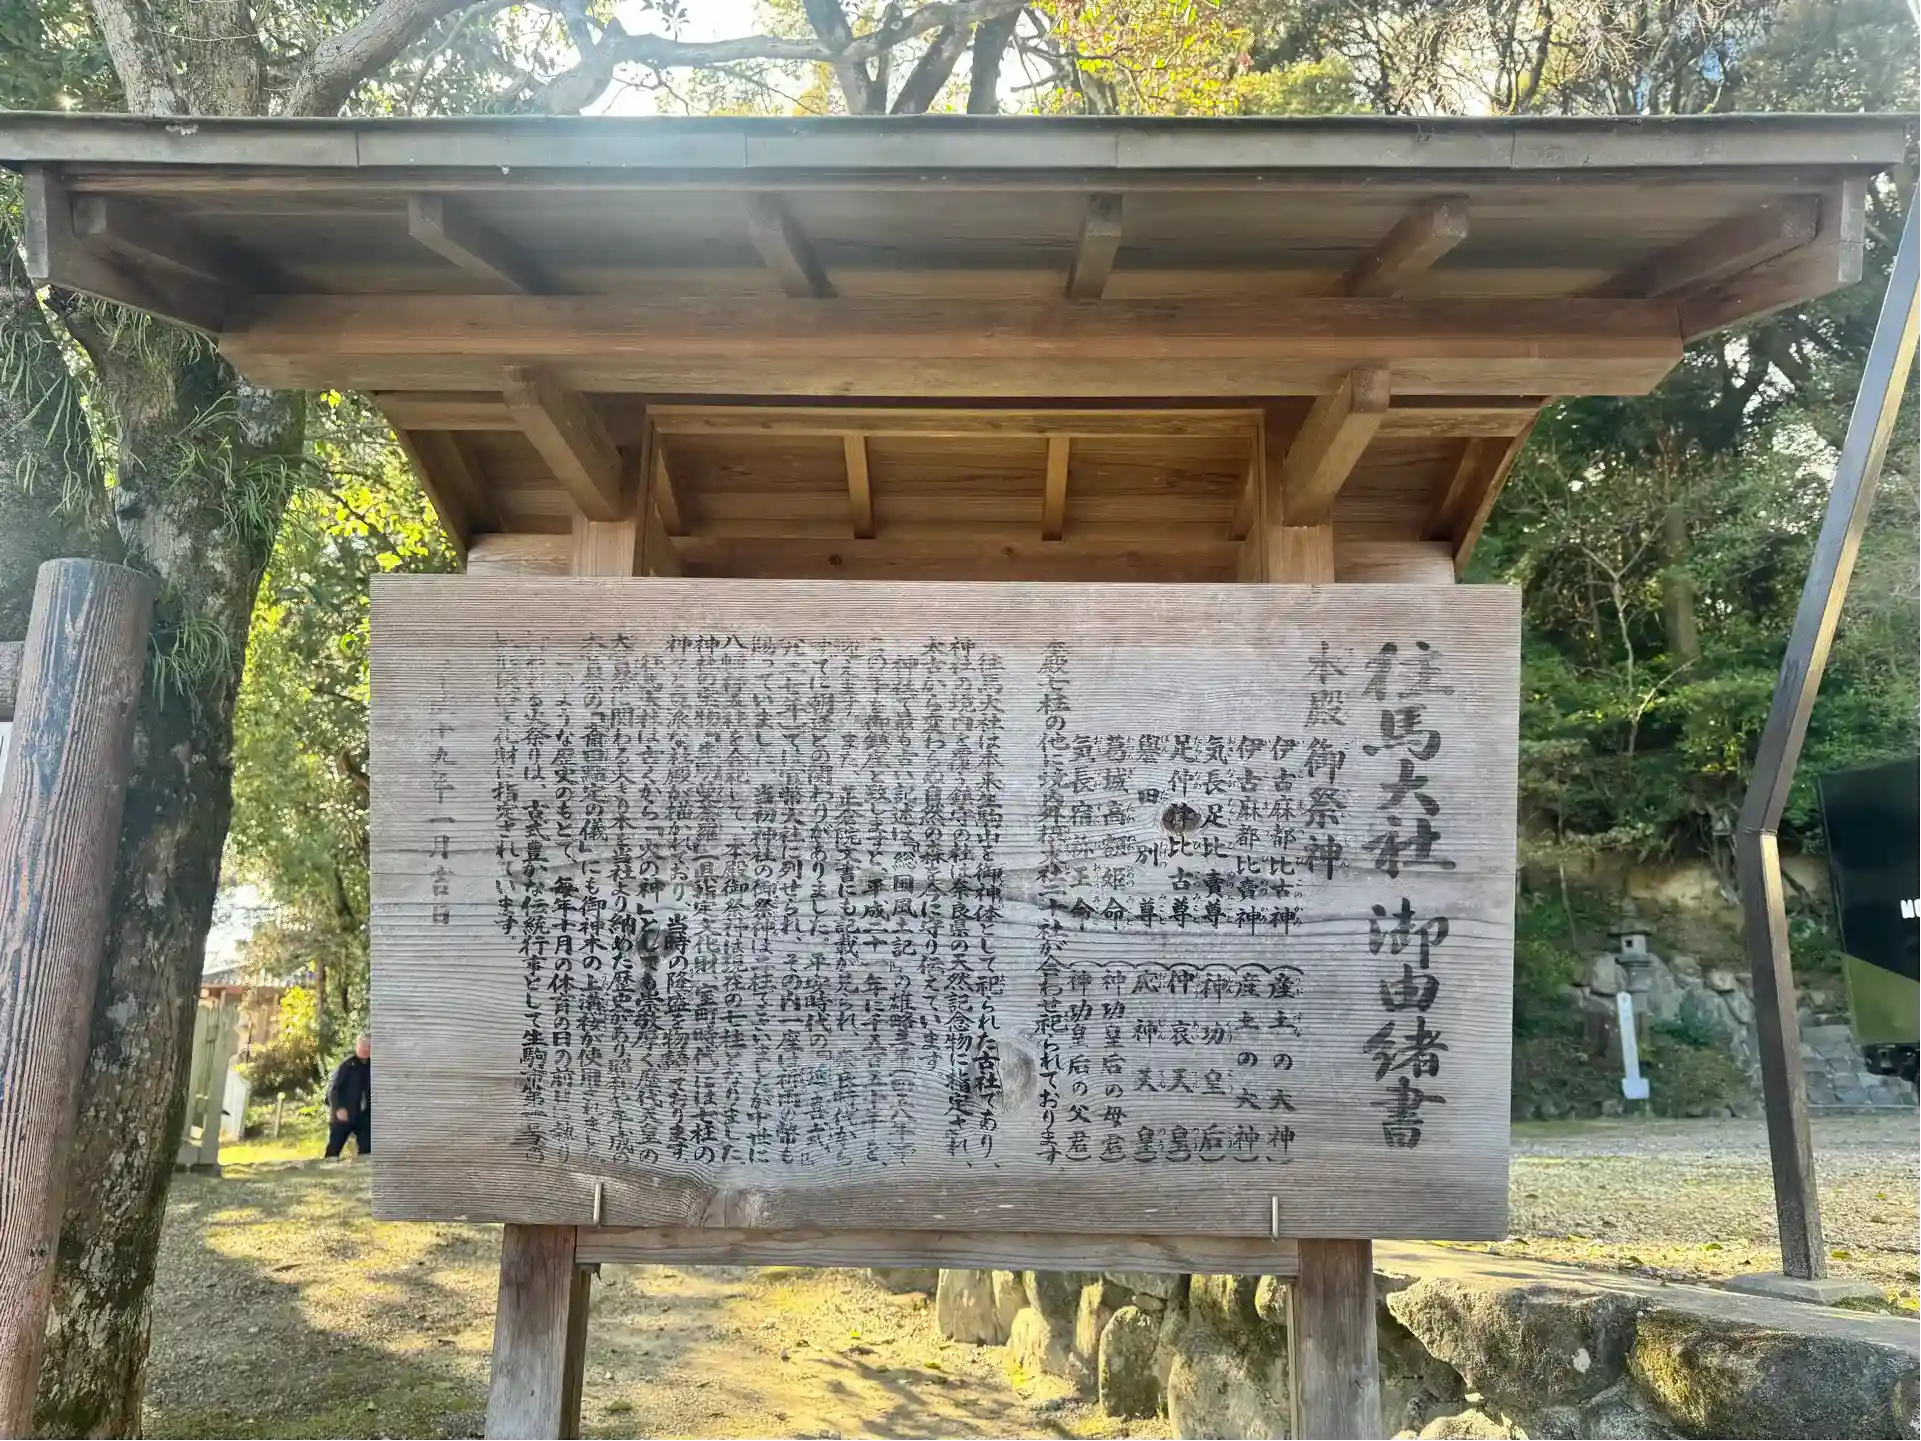 往馬大社 御由緒書
本殿 御祭神
伊古麻都比古神 (産土の大神)
伊古麻都比賣神 (産土の大神)
気長足比賣尊 (神功皇后)
足仲津比古尊 (仲哀天皇)
譽田別尊 (応神天皇)
葛城高額姫命 (神功皇后の母君)
気長宿祢王命 (神功皇后の父君)
本殿七柱の他に境内摂末社二十社が合わせ祀られております。
往馬大社は本来生駒山を御神体として祀られた古社であり、
神社の境内を覆う鎮守の社は奈良県の天然記念物に指定され、
太古から変わらぬ自然の森を今に守り伝えています
神社で最も古い記述は「総国風土記」の雄略三年(四五八年)
この年を御鎮座と致しますと、平成二十 年に千五百五十年を
迎えます。また、正倉院文書にも記載が見られ、奈良時代から
すでに朝廷との関わりがありました。平安時代の「延喜式」
(九二七年)では官幣大社に列せられ、その内一座は祈雨の幣も
賜っていました。当初神社の御祭神は二柱でございましたが中世に
八幡 を合祀して、本殿御祭神は現社の七柱となりました。
神社の宝物「生駒曼荼羅」(重要指定文化財)(室町時代)には七柱の
神々と立派な社殿が描かれており、当時の隆盛を物語っております。
往馬大社は古くから「火の神」としても崇敬厚く歴代天皇の
大嘗祭に関わる火きり木を当社より納めた歴史があり昭和や平成の
大嘗祭の「斎田點定の儀」にも御神木の上溝桜が使用されました。
このような歴史のもとで、毎年十月の体育の日の前日に執り
行われる火祭りは、古式豊かな伝統行事として生駒市第一号の
無形民俗文化財に指定されています。
平成十九年一月吉日